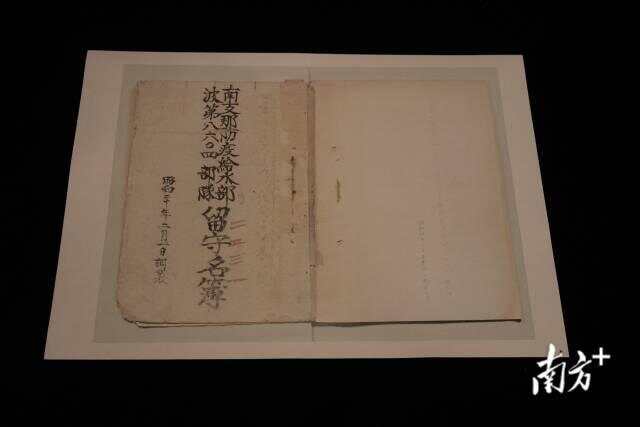 南支那防疫給水部
波第八六〇四部隊
留守名簿
昭和二十年一月一日調製
南方+